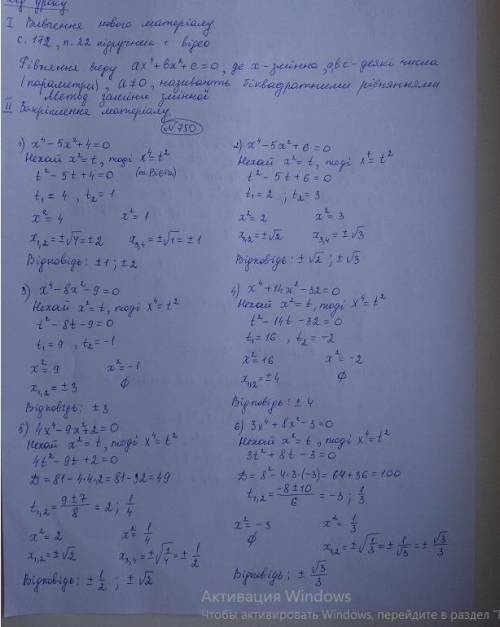 Хід уроку
I Вивчення нового матеріалу
с. 172, п. 22 підручник + відео
Рівняння виду ax⁴+bx²+c=0, де x-змінна, a,b,c-деякі числа
(параметри), a≠0, називають біквадратними рівняннями
Метод заміни змінної
II Закріплення матеріалу
№750
1) x⁴-5x²+4=0
Нехай x²=t, тоді x⁴=t²
t²-5t+4=0 (т. Вієта)
t₁=4, t₂=1
x²=4 x²=1
x₁,₂=±√4=±2 x₃,₄=±√1=±1
Відповідь: ±1; ±2
2) x⁴-5x²+6=0
Нехай x²=t, тоді x⁴=t²
t²-5t+6=0
t₁=2; t₂=3
x²=2 x²=3
x₁,₂=±√2 x₃,₄=±√3
Відповідь: ±√2; ±√3
3) x⁴-8x²-9=0
Нехай x²=t, тоді x⁴=t²
t²-8t-9=0
t₁=9, t₂=-1
x²=9 x²=-1
x₁,₂=±3 ∅
Відповідь: ±3
4) x⁴+14x²-32=0
Нехай x²=t, тоді x⁴=t²
t²-14t-32=0
t₁=16, t₂=-2
x²=16 x²=-2
x₁,₂=±4 ∅
Відповідь: ±4
5) 4x⁴-9x²+2=0
Нехай x²=t, тоді x⁴=t²
4t²-9t+2=0
D=81-4·4·2=81-32=49
t₁,₂=(9±7)/8=2; 1/4
x²=2 x²=1/4
x₁,₂=±√2 x₃,₄=±√(1/4)=±1/2
Відповідь: ±1/2; ±√2
6) 3x⁴+8x²-3=0
Нехай x²=t, тоді x⁴=t²
3t²+8t-3=0
D=8²-4·3·(-3)=64+36=100
t₁,₂=(-8±10)/6=-3; 1/3
x²=-3 x²=1/3
∅ x₁,₂=±√(1/3)=±1/√3=±√3/3
Відповідь: ±√3/3
Активация Windows
Чтобы активировать Windows, перейдите в раздел "